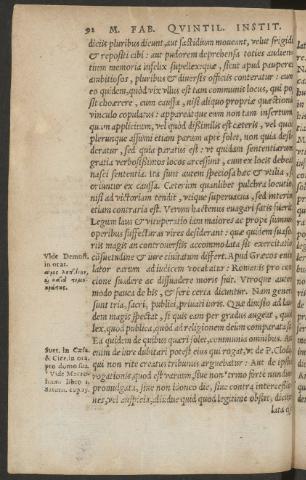 92 M. FAB. QVINTIL. INSTIT.
diciis pluribus dicunt, aut fastidium moueant, velut frigidi
& repositi cibi: aut pudorem deprehensa toties audien-
tium memoria infelix supellex: quæ, sicut apud pauperes
ambitiosos, pluribus & diuersis officiis conteratur: cum
eo quidem, quòd vix vllus est tam communis locus, qui pos
sit cohærere, cum caussa, nisi aliquo propriæ quæstionis
vinculo copulatus: appareátque eum non tam insertum
quàm applicitum, vel quòd dissimilis est ceteris, vel quòd
plerunque assumi etiam parum aptè solet, non quia desi-
deratur, sed quia paratus est: vt quidam sententiarum
gratia verbosissimos locos arcessunt, cum ex locis debeat
nasci sententia. ita sunt autem speciosa hæc & vtilia, si
oriuntur ex caussa. Ceterùm quamlibet pulchra locutio,
nisi ad victoriam tendit, vtique superuacua, sed interim
etiam contraria est. Verùm hactenus euagari satis fuerit.
Legum laus & vituperatio iam maiores ac propè summis
operibus suffecturas vires desiderant: quæ quidem suaso-
riis magis an controuersiis accommodata sit exercitatio
Vide Demost. cōsuetudine & iure ciuitatum differt. Apud Græcos enim
in orat.
lator earum ad iudicem vocabatur: Romanis pro con-
cione suadere ac dissuadere moris fuit. Vtroque autem
modo pauca de his, & ferè certa dicuntur. Nam genera
sunt tria, sacri, publici, priuati iuris. Quæ diuisio ad lau-
dem magis spectat, si quis eam per gradus augeat, quòd
lex, quòd publica, quòd ad religionem deûm comparata sit.
Ea quidem de quibus quæri solet, communia omnibus. Aut
enim de iure dubitari potest eius qui rogat, vt de P. Clodij,
qui non ritè creatus tribunus arguebatur: Aut de ipsius
rogationis, quod est varium, siue non trino fortè nundino
promulgata, siue non idoneo die, siue contra intercessio-
nes, vel auspicia, aliudue quid quod legitimis obstet, dicitur
lata es